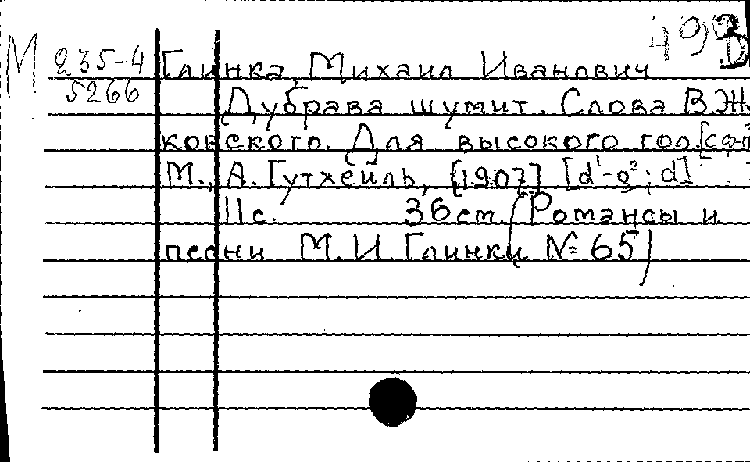 М 235-4
5266
Глинка, Михаил Иванович
Дубрава шумит. Слова В.Ж
ковского. Для высокого гол. [с ф-п
М., А. Гутхейль, [1907] [d¹-g²; d]
11 с. 36 см (Романсы и
песни М.И. Глинки № 65)